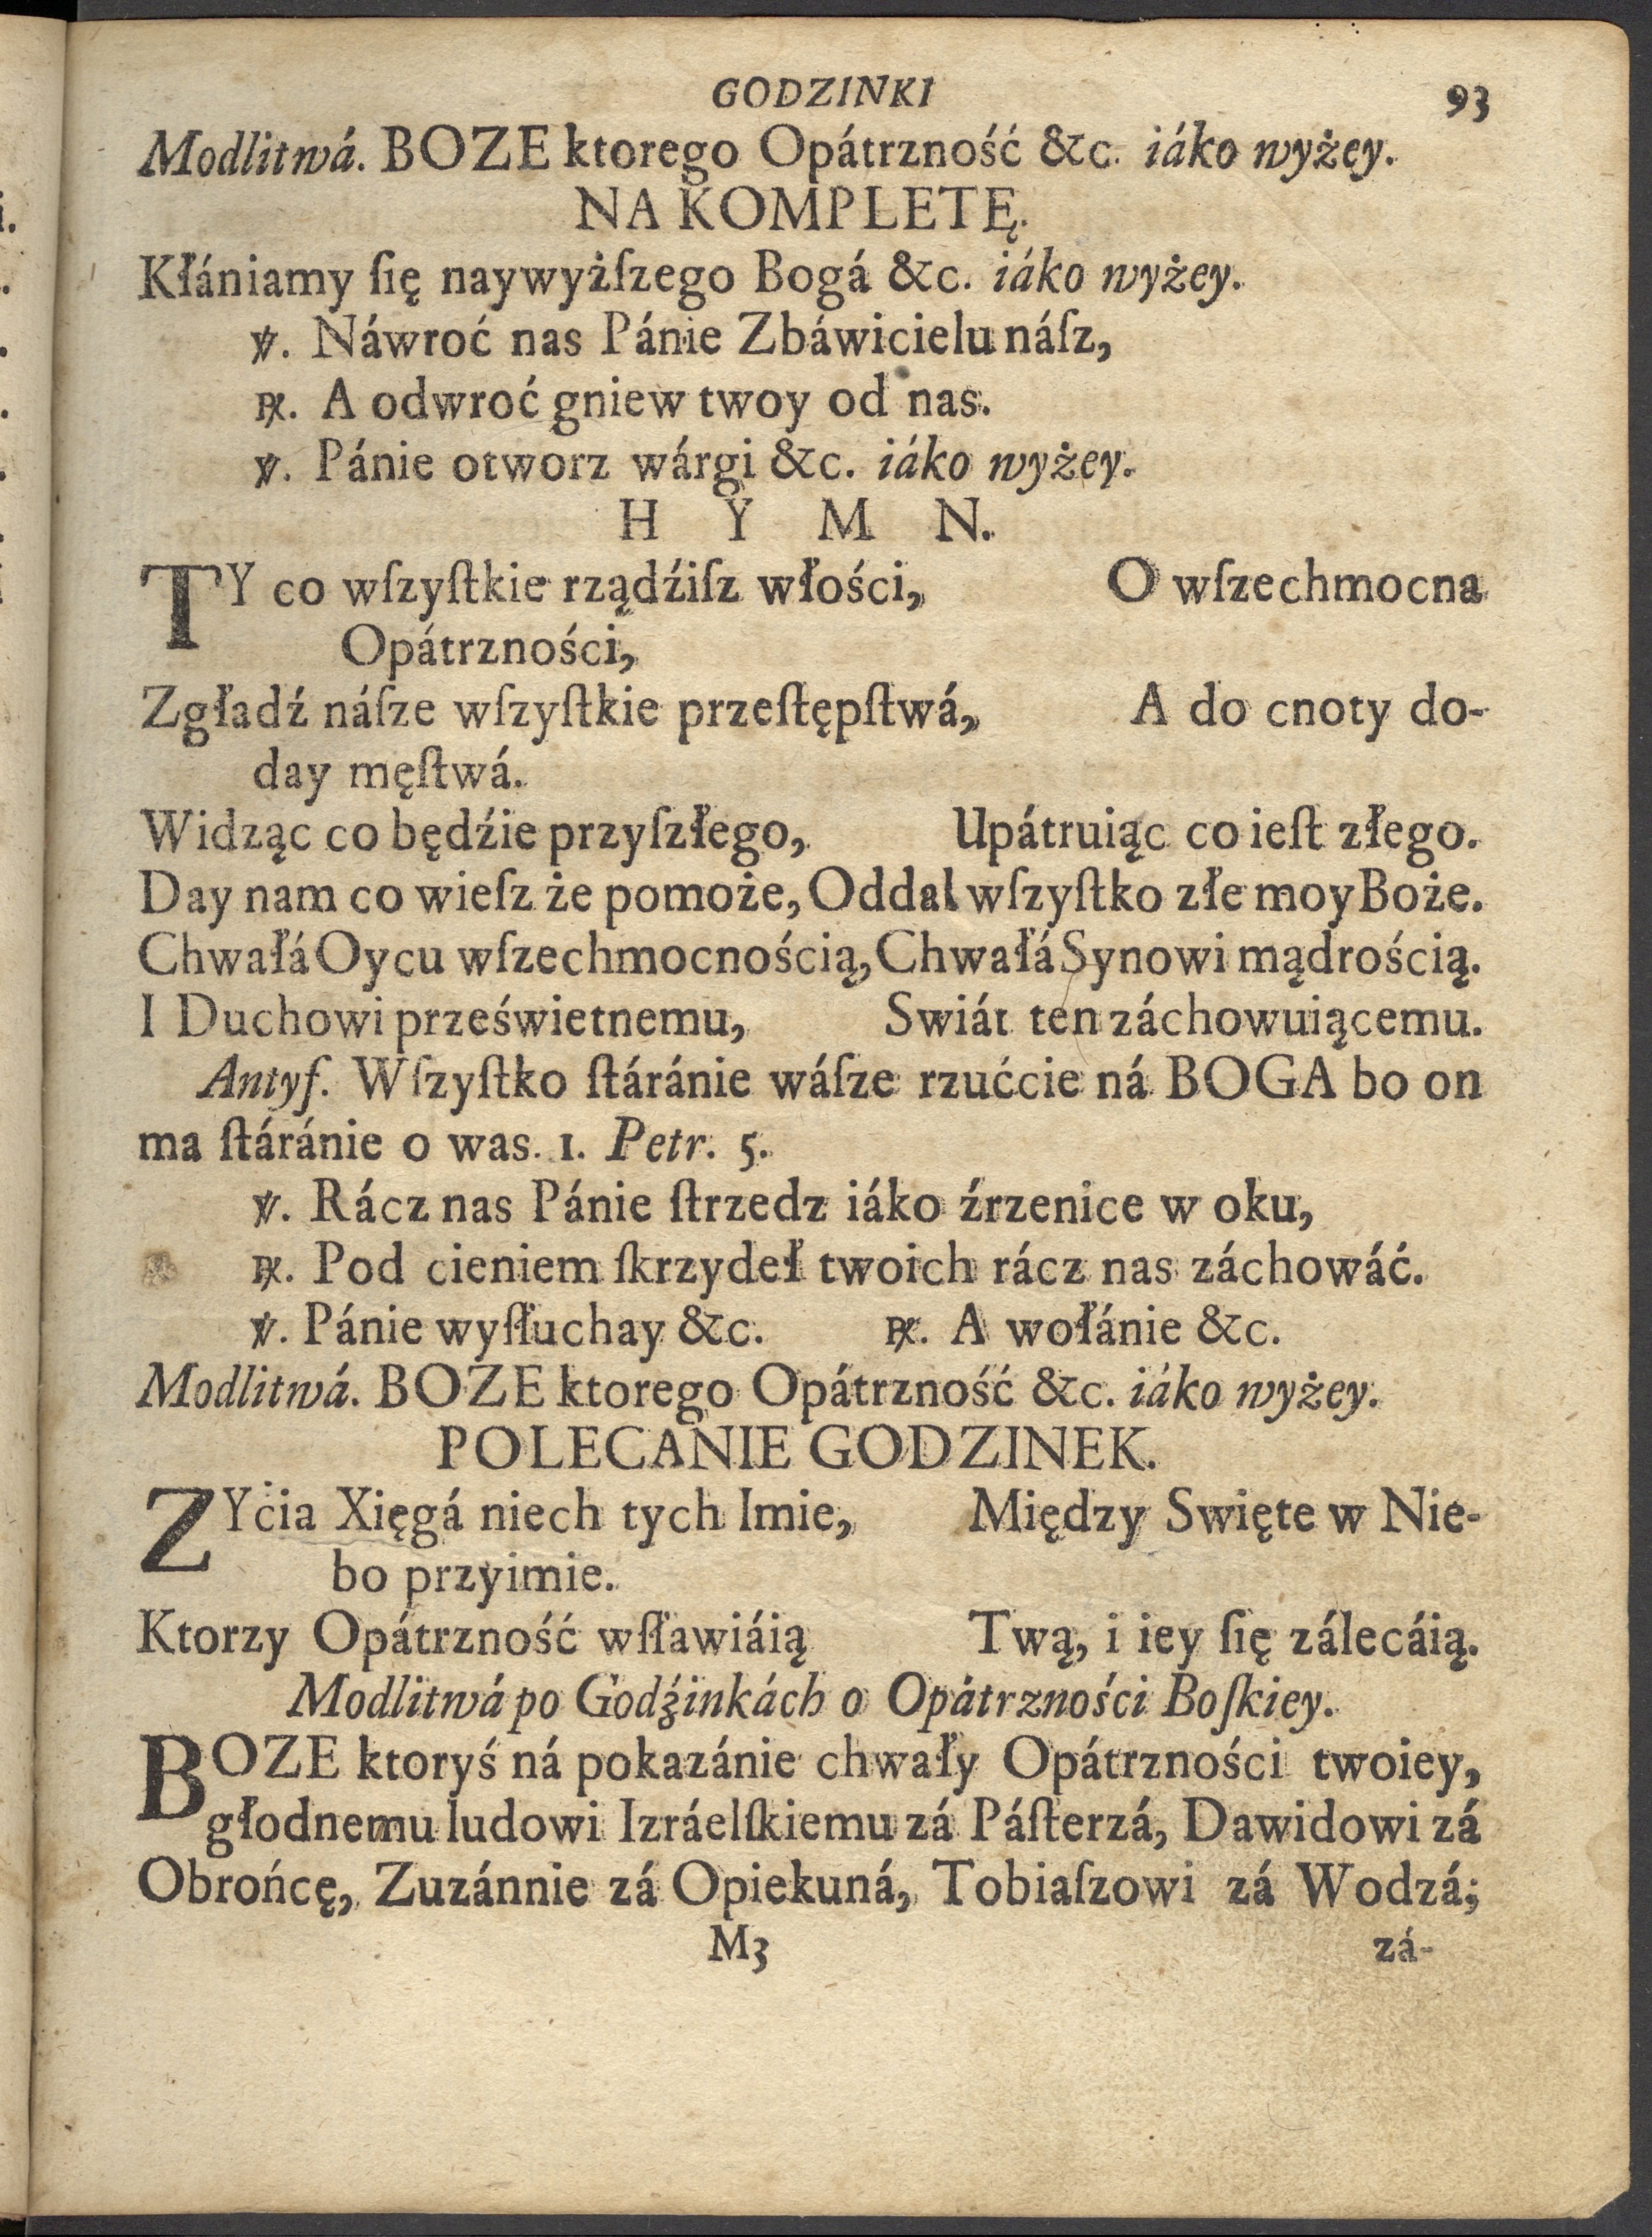 GODZINKI 93
Modlitwá. BOZE ktorego Opátrzność &c. iáko wyżey.
NA KOMPLETĘ.
Kłániamy ſię naywyżſzego Bogá &c. iáko wyżey.
℣. Náwroć nas Pánie Zbáwicielu náſz,
℟. A odwroć gniew twoy od nas.
℣. Pánie otworz wárgi &c. iáko wyżey.
H Y M N.
TY co wſzyſtkie rządźiſz włości, O wſzechmocna
Opátrzności,
Zgładź náſze wſzyſtkie przeſtępſtwá, A do cnoty do-
day męſtwá.
Widząc co będźie przyſzłego, Upátruiąc co ieſt złego.
Day nam co wieſz że pomoże, Oddal wſzyſtko złe moy Boże.
Chwałá Oycu wſzechmocnością, Chwałá Synowi mądrością.
I Duchowi prześwietnemu, Swiát ten záchowuiącemu.
Antyf. Wſzyſtko ſtáránie wáſze rzućcie ná BOGA bo on
ma ſtáránie o was. 1. Petr. 5.
℣. Rácz nas Pánie ſtrzedz iáko źrzenice w oku,
℟. Pod cieniem ſkrzydeł twoich rácz nas záchowáć.
℣. Pánie wyſłuchay &c. ℟. A wołánie &c.
Modlitwá. BOZE ktorego Opátrzność &c. iáko wyżey.
POLECANIE GODZINEK.
ZYcia Xięgá niech tych Imie, Między Swięte w Nie-
bo przyimie.
Ktorzy Opátrzność wſławiáią Twą, i iey ſię zálecáią.
Modlitwá po Godźinkách o Opátrzności Boſkiey.
BOZE ktoryś ná pokazánie chwały Opátrzności twoiey,
głodnemu ludowi Izráelſkiemu zá Páſterzá, Dawidowi zá
Obrońcę, Zuzánnie zá Opiekuná, Tobiaſzowi zá Wodzá;
M3 zá-